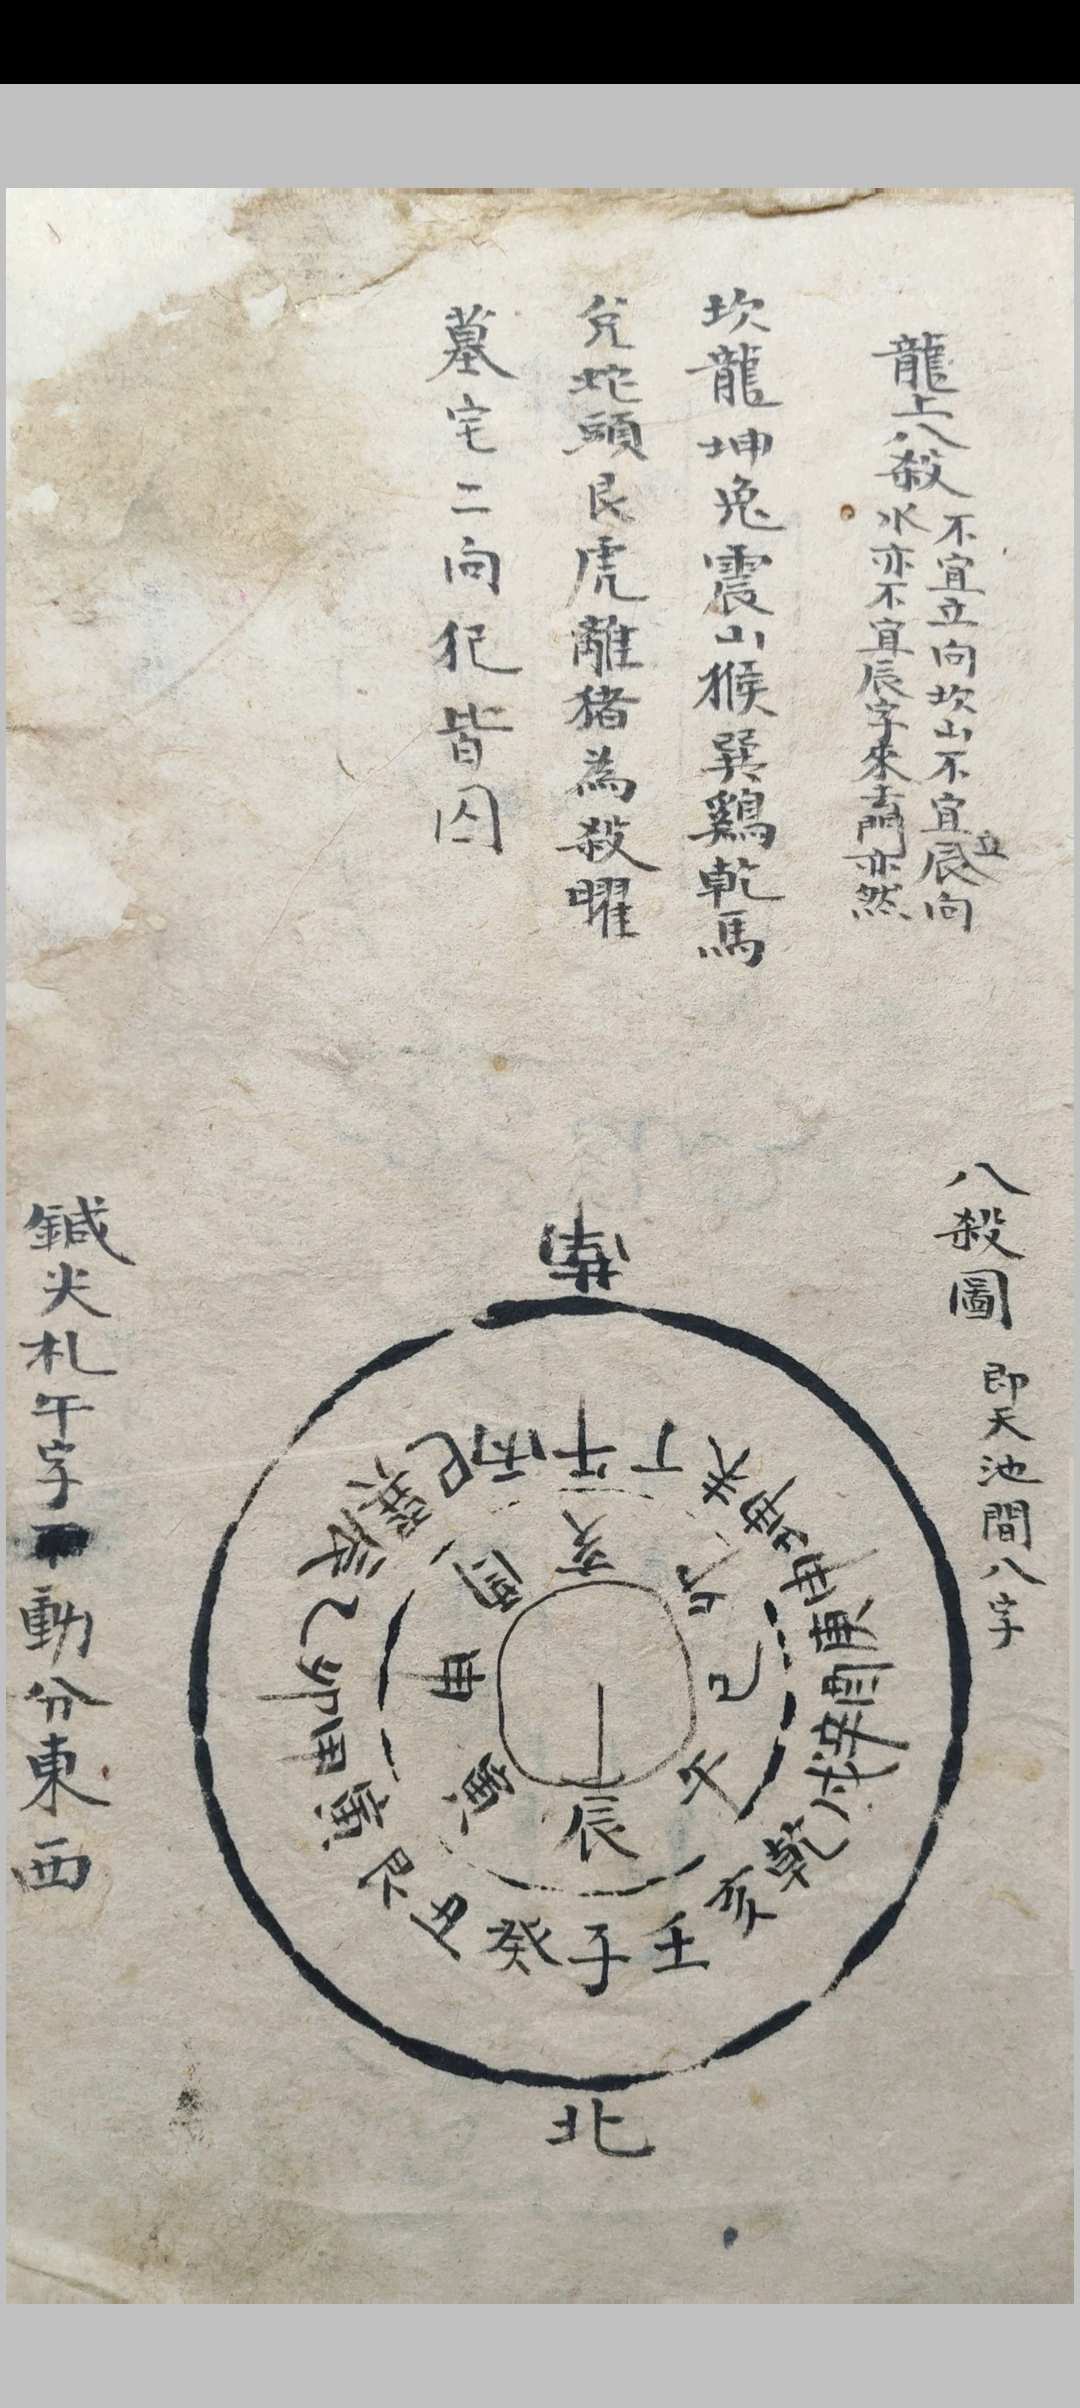 龍上八殺
不宜立向坎山不宜立辰向
水亦不宜辰字來去開門亦然
坎龍坤兔震山猴巽鷄乾馬
兌蛇頭艮虎離猪為殺曜
墓宅二向犯皆凶
八殺圖 即天池間八字
南
午丁未坤申庚酉辛戌乾亥壬子癸丑艮寅甲卯乙辰巽巳丙
亥卯巳午辰寅申酉
北
鍼尖札午字
動分東西